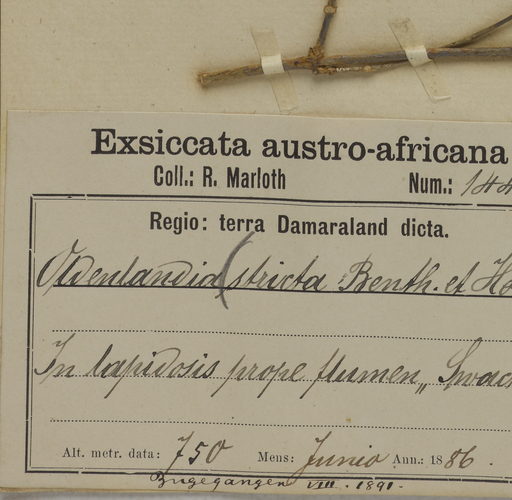 Exsiccata austro-africana
Coll.: R. Marloth Num.:
Regio: terra Damaraland dicta.
Oldenlandia (stricta Benth. et
In lapidosis prope flumen „
Alt. metr. data: 750 Mens: Junio Ann.: 1886.
Zugegangen VIII. 1891.